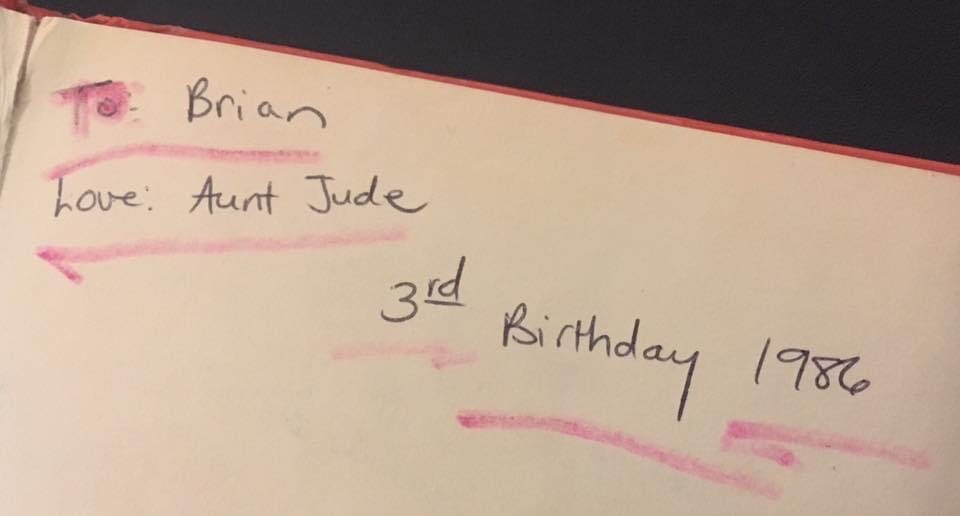 To: Brian
Love: Aunt Jude
3rd Birthday 1986